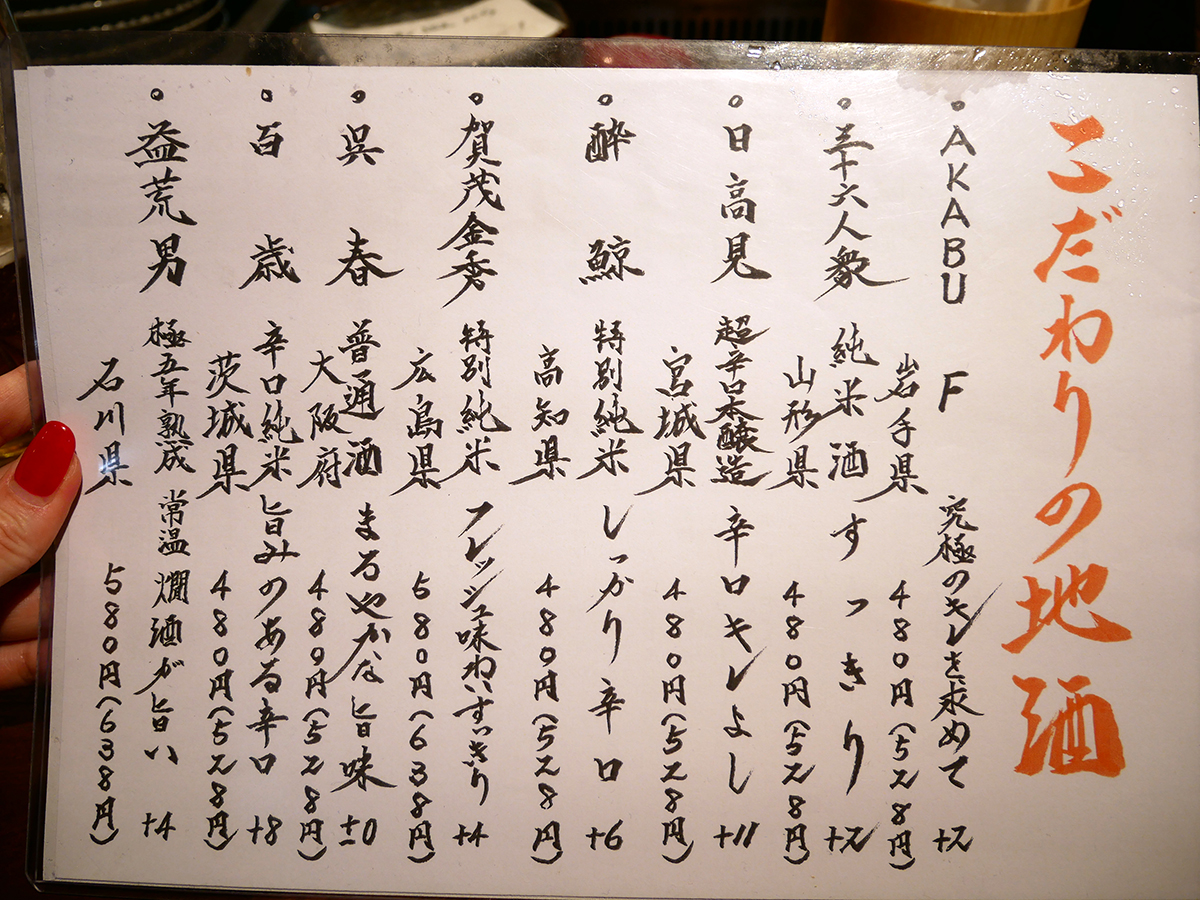 こだわりの地酒
・AKABU F 究極のキレを求めて +2
岩手県 480円(528円)
・三十六人衆 純米酒 すっきり +2
山形県 480円(528円)
・日高見 超辛口本醸造 辛口キレよし +11
宮城県 480円(528円)
・酔鯨 特別純米 しっかり辛口 +6
高知県 480円(528円)
・賀茂金秀 特別純米 フレッシュ味わいすっきり +4
広島県 580円(638円)
・呉春 普通酒 まろやかな旨味 ±0
大阪府 480円(528円)
・百歳 辛口純米 旨みのある辛口 +8
茨城県 480円(528円)
・益荒男 極五年熟成 常温 燗酒が旨い +4
石川県 580円(638円)